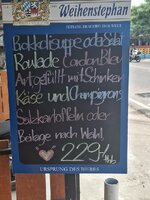 Weihenstephan
Brokkolisuppe oder Salat
Roulade Cordon Bleu
Art gefüllt mit Schinken
Käse und Champignons
Salzkartoffeln oder
Beilage nach Wahl
229,-
URSPRUNG DES BIERES